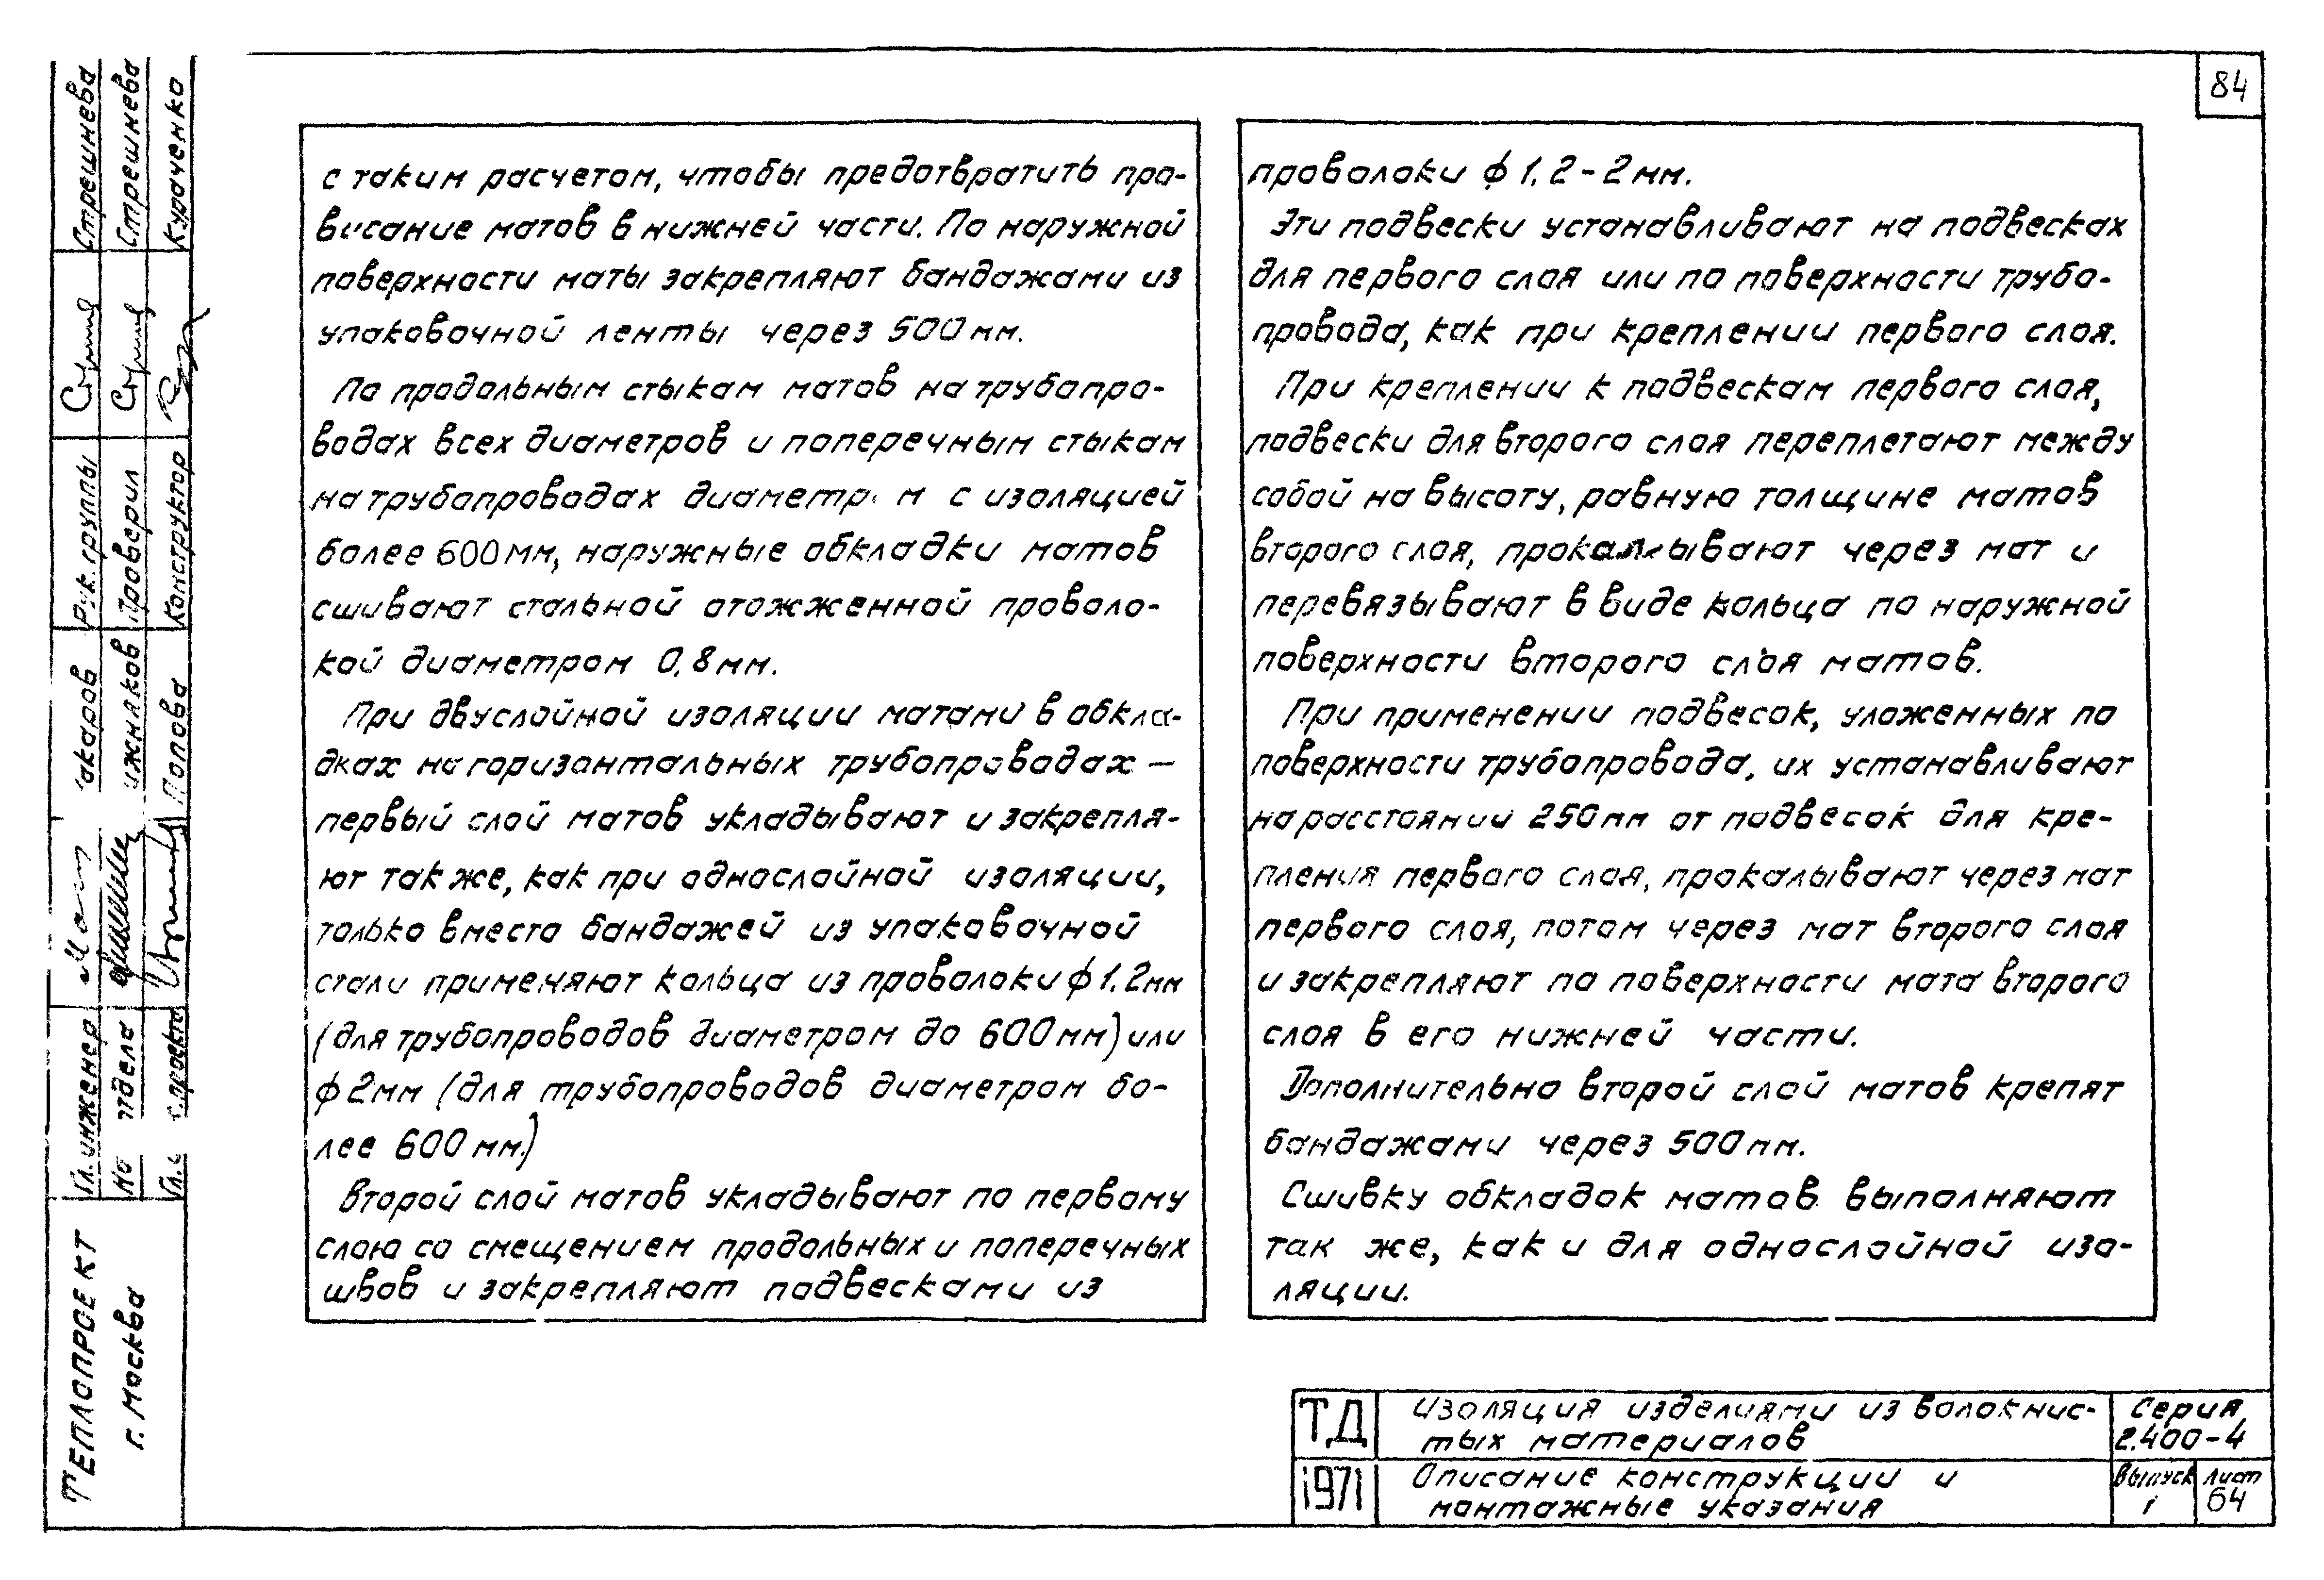 84
с таким расчетом, чтобы предотвратить про-
висание матов в нижней части. По наружной
поверхности маты закрепляют бандажами из
упаковочной ленты через 500 мм.
По продольным стыкам матов на трубопро-
водах всех диаметров и поперечным стыкам
на трубопроводах диаметр м с изоляцией
более 600 мм, наружные обкладки матов
сшивают стальной отожженной проволо-
кой диаметром 0,8 мм.
При двуслойной изоляции матами в обкла-
дках на горизонтальных трубопроводах —
первый слой матов укладывают и закрепля-
ют так же, как при однослойной изоляции,
только вместо бандажей из упаковочной
стали применяют кольца из проволоки ϕ 1,2 мм
(для трубопроводов диаметром до 600 мм) или
ϕ 2 мм (для трубопроводов диаметром бо-
лее 600 мм.)
Второй слой матов укладывают по первому
слою со смещением продольных и поперечных
швов и закрепляют подвесками из
проволоки ϕ 1,2-2 мм.
Эти подвески устанавливают на подвесках
для первого слоя или по поверхности трубо-
провода, как при креплении первого слоя.
При креплении к подвескам первого слоя,
подвески для второго слоя переплетают между
собой на высоту, равную толщине матов
второго слоя, прокалывают через мат и
перевязывают в виде кольца по наружной
поверхности второго слоя матов.
При применении подвесок, уложенных по
поверхности трубопровода, их устанавливают
на расстоянии 250 мм от подвесок для кре-
пления первого слоя, прокалывают через мат
первого слоя, потом через мат второго слоя
и закрепляют по поверхности мата второго
слоя в его нижней части.
Дополнительно второй слой матов крепят
бандажами через 500 мм.
Сшивку обкладок матов выполняют
так же, как и для однослойной изо-
ляции.
ТЕПЛОПРОЕКТ
г. Москва
Гл. инженер
отдела
проекта
Попова
Рук. группы
Проверил
Конструктор
Стрешнева
Стрешнева
Кураченко
ТД
1971
Изоляция изделиями из волокнис-
тых материалов
Описание конструкции и
монтажные указания
Серия
2.400-4
Выпуск
1
Лист
64